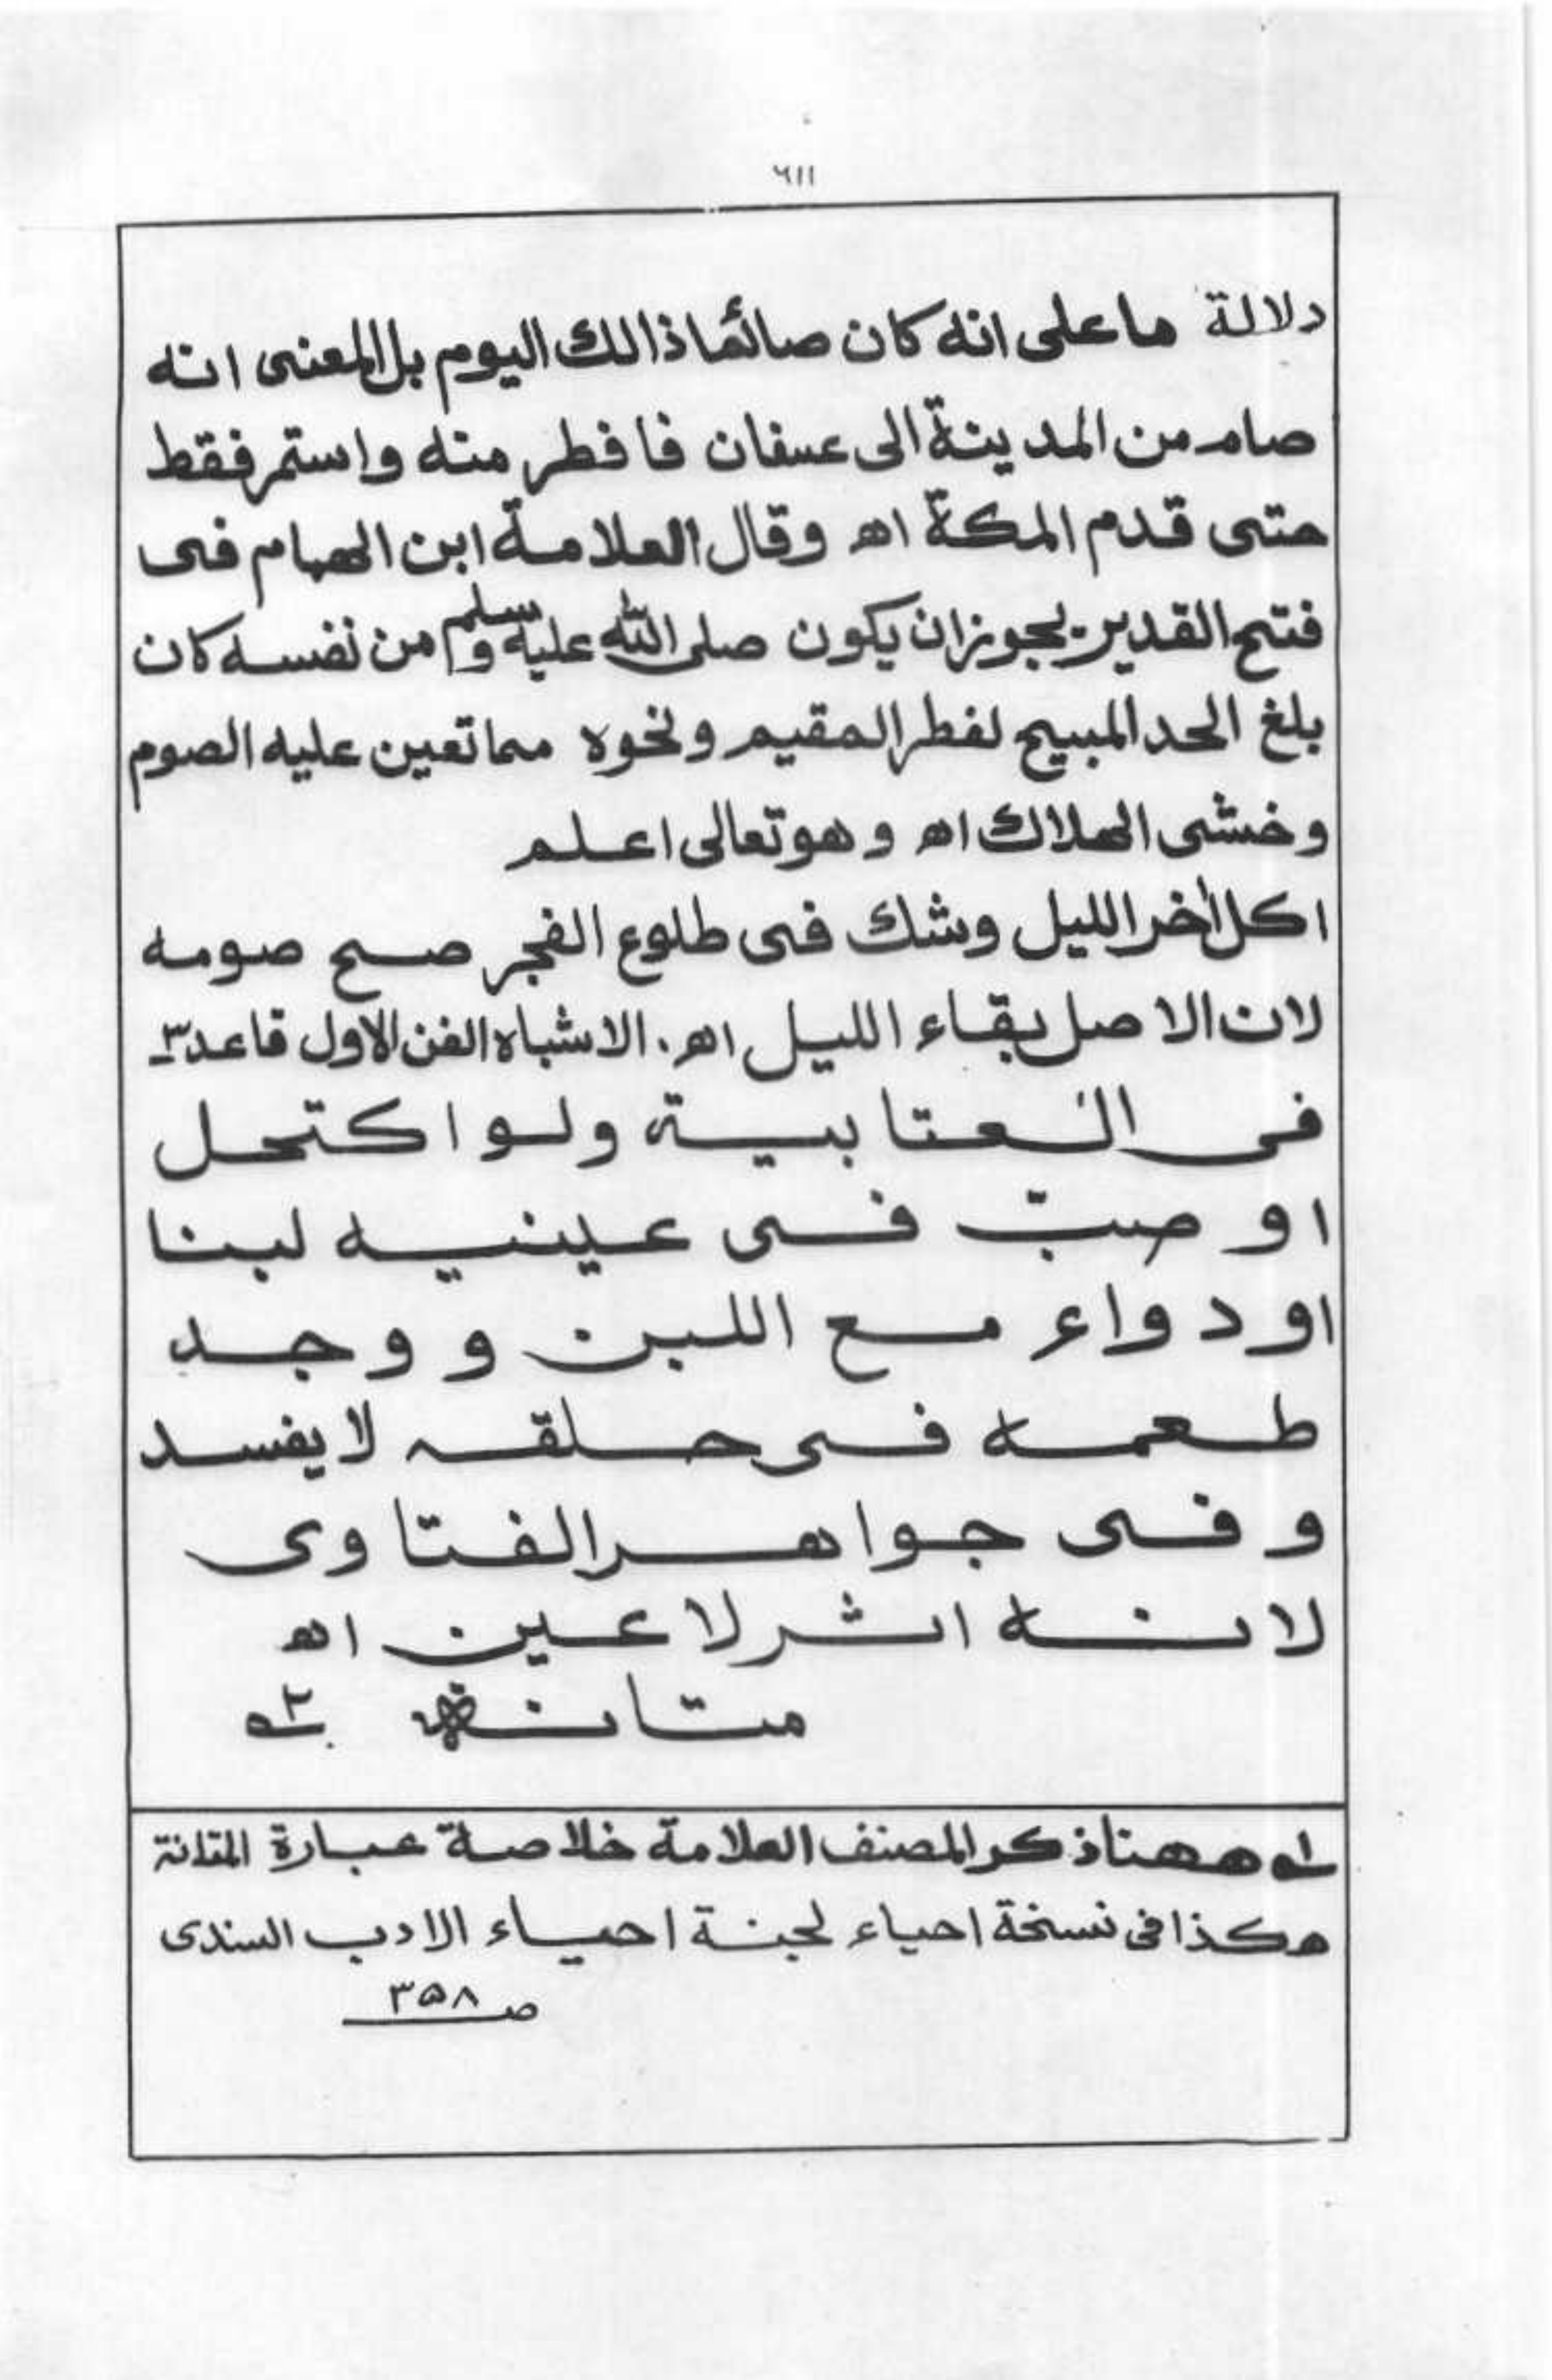 ٦١١
دلالة ما على انه كان صائما ذالك اليوم بل المعنى انه
صام من المدينة الى عسفان فافطر منه واستمر فقط
حتى قدم المكة اه وقال العلامة ابن الهمام فى
فتح القدير. يجوز ان يكون صلى الله عليه وسلم من نفسه كان
بلغ الحد المبيح لفطر المقيم ونحوه مما تعين عليه الصوم
وخشى الهلاك اه وهو تعالى اعلم
اكل أخر الليل وشك فى طلوع الفجر صح صومه
لان الاصل بقاء الليل اه. الاشباه الفن الاول قاعد٣
فى العتابية ولو اكتحل
او صبّ فى عينيه لبنا
او دواء مع اللبن ووجد
طعمه فى حلقه لا يفسد
وفى جواهر الفتاوى
لانه اثر لا عين اه
متانة
ههنا ذكر المصنف العلامة خلاصة عبارة المتانة
هكذا فى نسخة احياء لجنة احياء الادب السندى
ص ٣٥٨